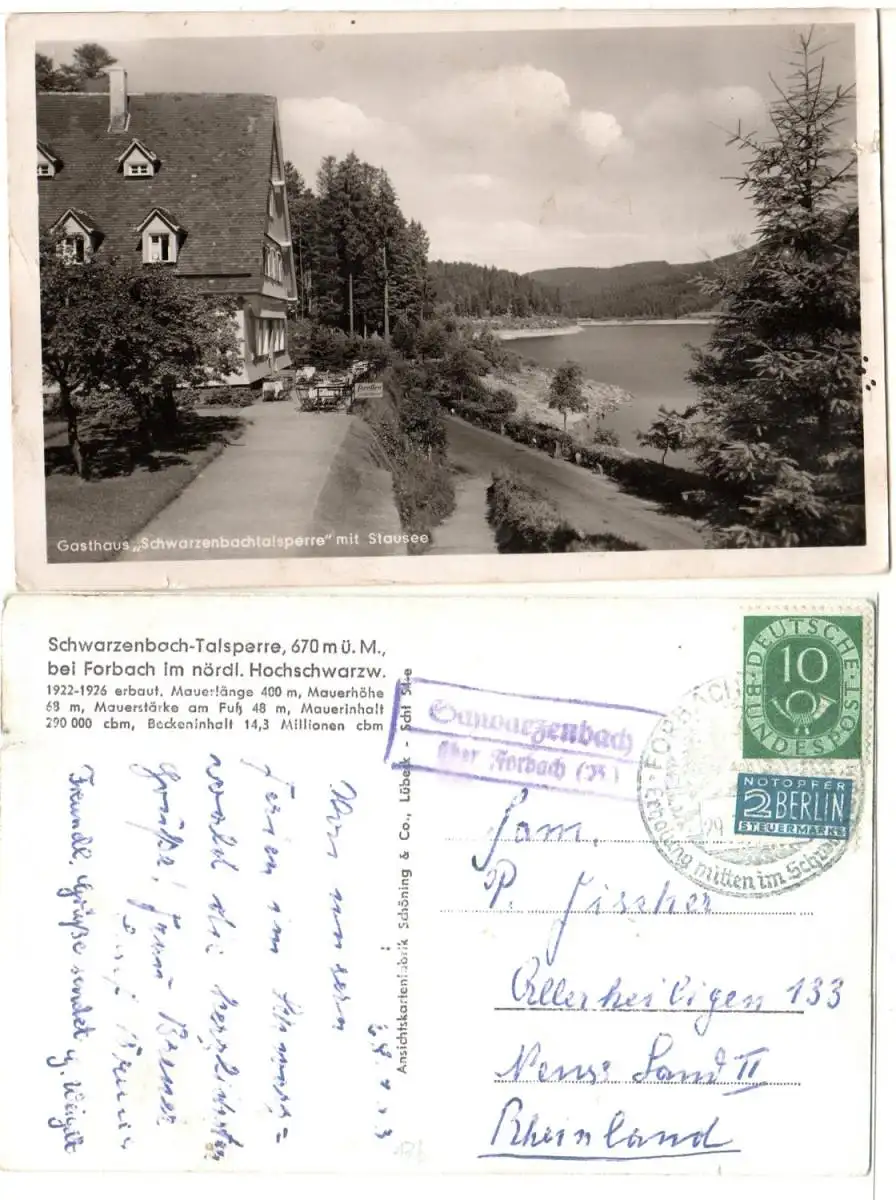 Gasthaus „Schwarzenbachtalsperre" mit Stausee
Schwarzenbach-Talsperre, 670 m ü. M.,
bei Forbach im nördl. Hochschwarzw.
1922-1926 erbaut. Mauerlänge 400 m, Mauerhöhe
68 m, Mauerstärke am Fuß 48 m, Mauerinhalt
290 000 cbm, Beckeninhalt 14,3 Millionen cbm
Ansichtskartenfabrik Schöning & Co., Lübeck
Schwarzenbach
über Forbach (B.)
FORBACH
Erholung mitten im
29
DEUTSCHE
BUNDESPOST
10
NOTOPFER
2 BERLIN
STEUERMARKE
Fam.
P. Fischer
Allerheiligen 133
Neuss Land II
Rheinland
Von unseren
Ferien im Schwarz=
wald die herzlichsten
Grüße! Fam.
Freundl. Grüße sendet